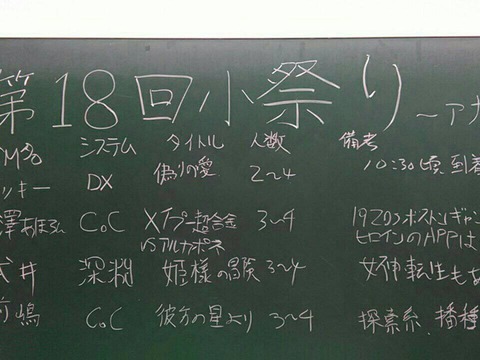 第18回小祭り ~アナ
M名 システム タイトル 人数 備考
ッキー DX 偽りの愛 2~4 10:30頃到着
CoC 超合金 3~4 1920sボストンギャン
VSアルカポネ ヒロインのAPPは
武井 深淵 姫様の冒険 3~4 女神転生もな
前嶋 CoC 彼方の星より 3~4 探索系、播種